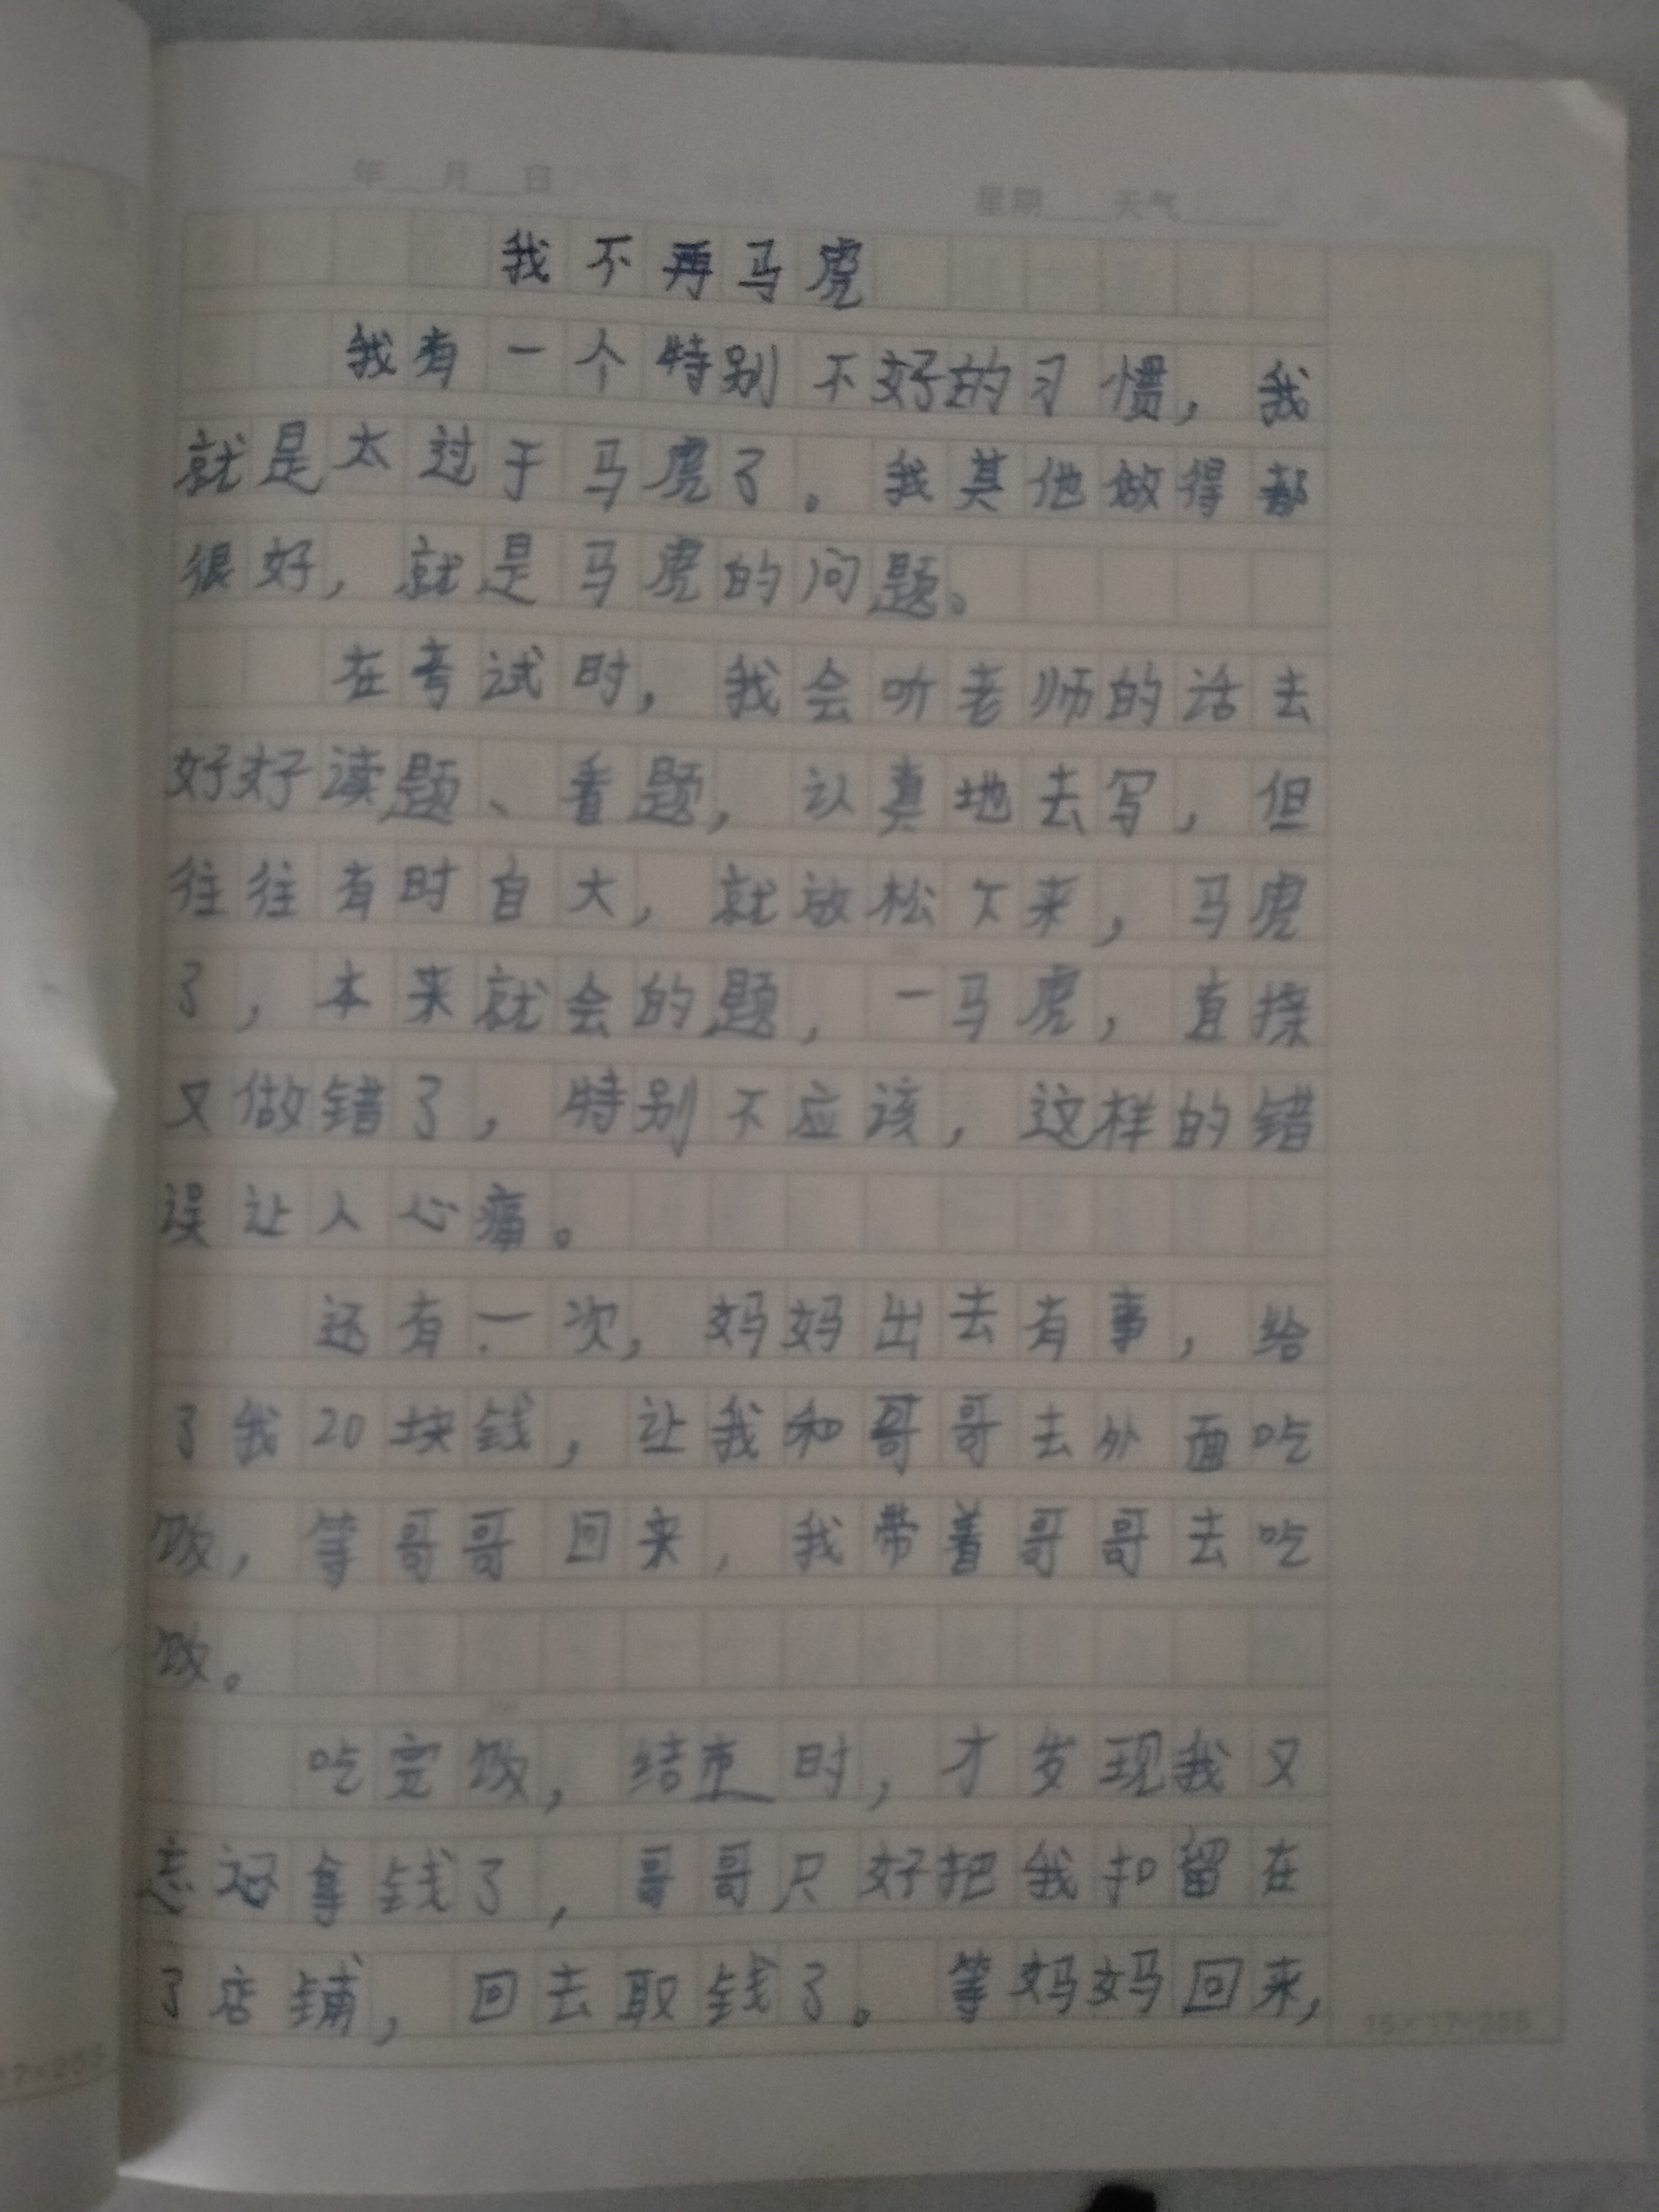 年 月 日 星期 天气
我不再马虎
我有一个特别不好的习惯，我
就是太过于马虎了。我其他做得都
很好，就是马虎的问题。
在考试时，我会听老师的话去
好好读题、看题，认真地去写，但
往往有时自大，就放松下来，马虎
了，本来就会的题，一马虎，直接
又做错了，特别不应该，这样的错
误让人心痛。
还有一次，妈妈出去有事，给
了我20块钱，让我和哥哥去外面吃
饭，等哥哥回来，我带着哥哥去吃
饭。
吃完饭，结束时，才发现我又
忘记拿钱了，哥哥只好把我扣留在
了店铺，回去取钱了。等妈妈回来，
15×17=255